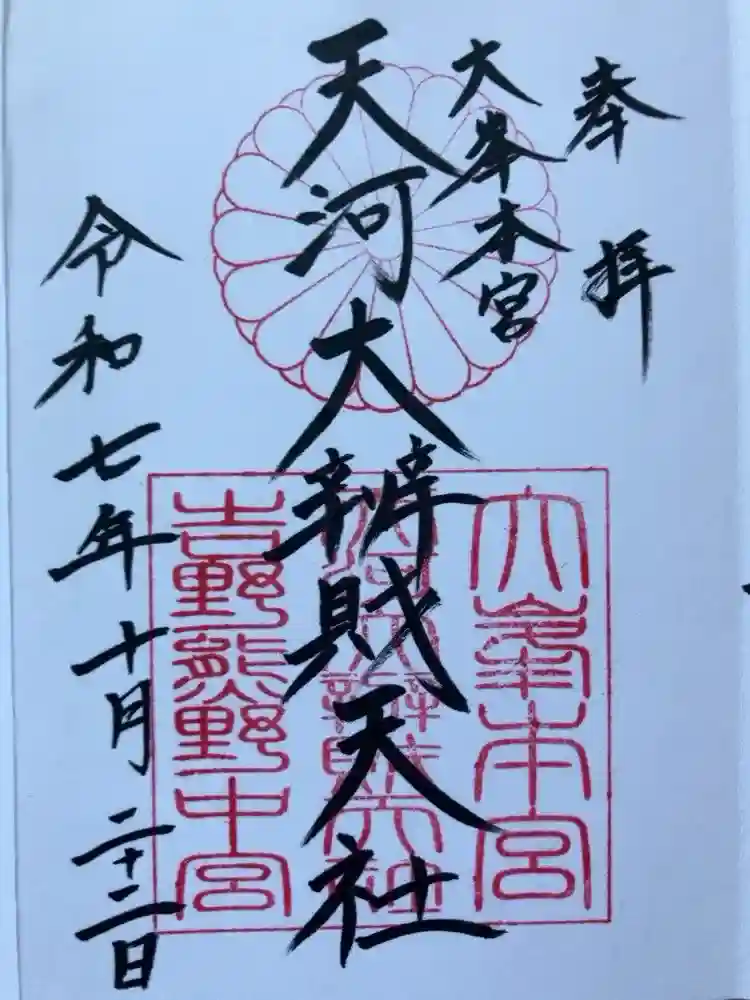 奉拝
大峯本宮
天河大辨財天社
令和七年十月二十二日
大峯本宮
天河大辨財天社
吉野熊野中宮